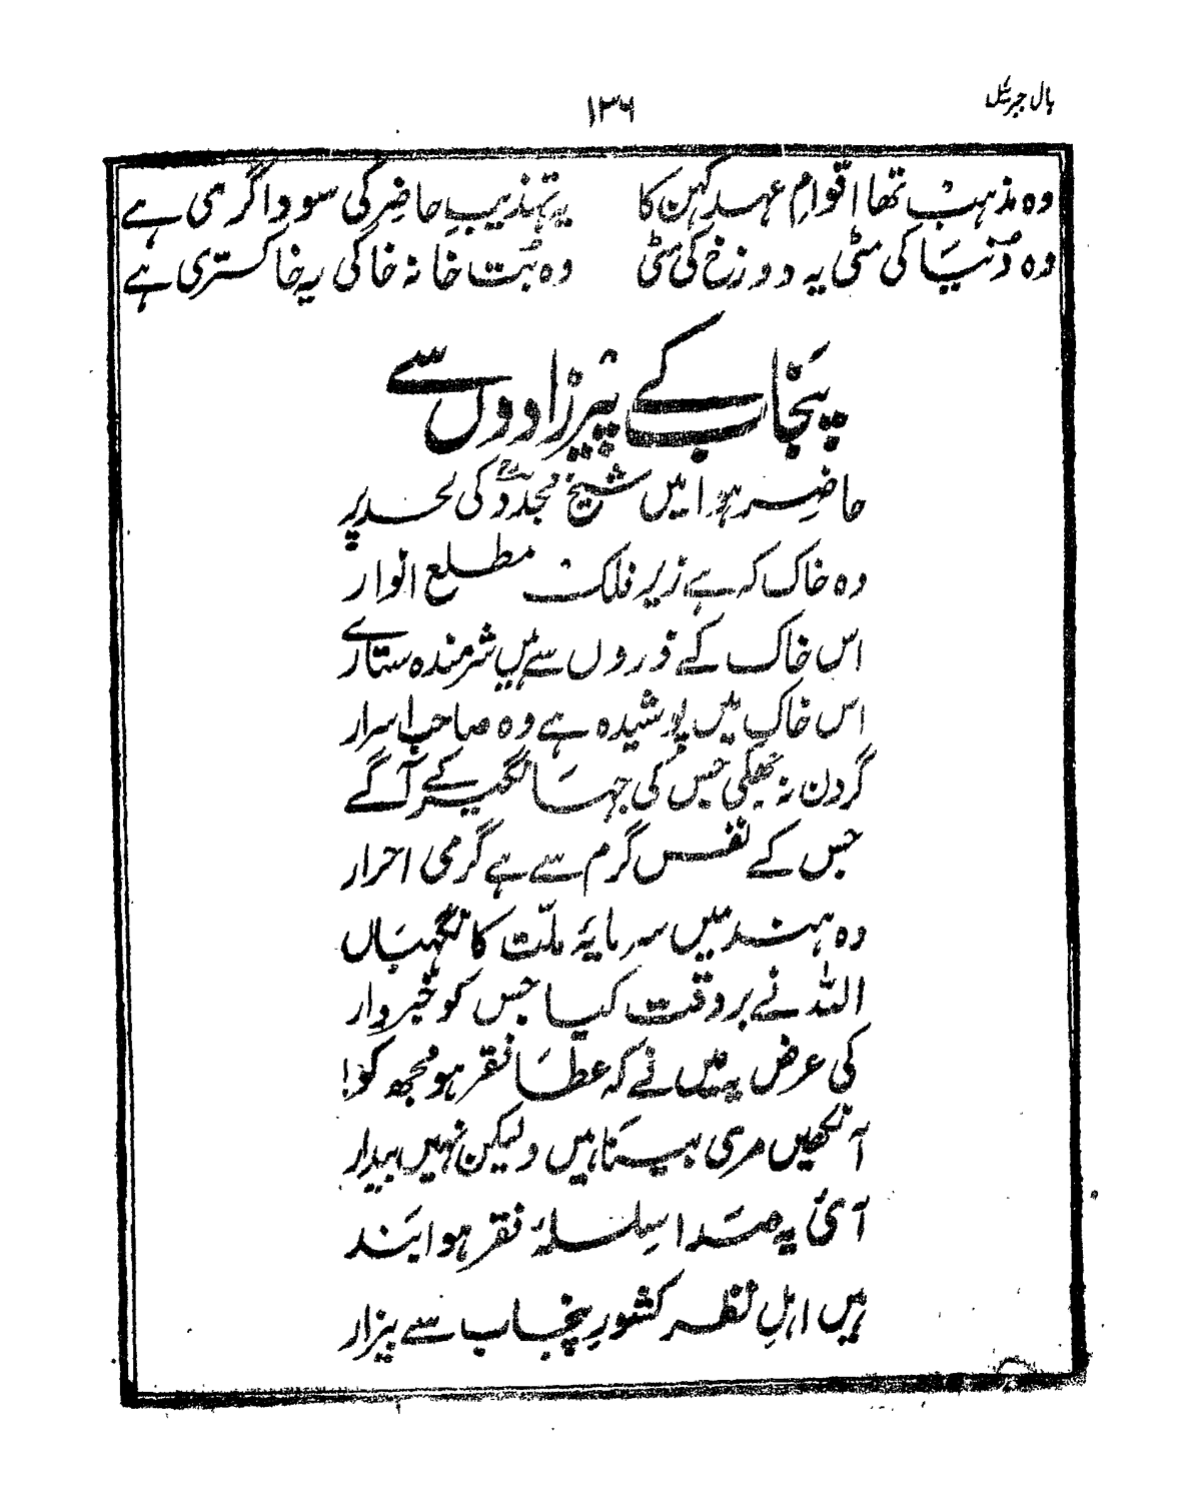 بال جبریل
۱۳۶
وہ مذہب تھا اقوامِ عہدِ کہن کا یہ تہذیبِ حاضِر کی سوداگری ہے
وہ دُنیا کی مٹی یہ دوزخ کی مٹی وہ بُت خانہ خاکی یہ خاکستری ہے
پنجاب کے پیرزادوں سے
حاضِر ہوا میں شیخِ مجدّدؒ کی لحد پر
وہ خاک کہ ہے زیرِ فلک مطلعِ انوار
اس خاک کے ذروں سے ہیں شرمندہ ستارے
اس خاک میں پوشیدہ ہے وہ صاحبِ اسرار
گردن نہ جھکی جس کی جہانگیر کے آگے
جس کے نفس گرم سے ہے گرمی احرار
وہ ہند میں سرمایۂ ملّت کا نگہباں
اللہ نے بروقت کیا جس کو خبردار
کی عرض یہ میں نے کہ عطا فقر ہو مجھ کو!
آنکھیں مری بینا ہیں ولیکن نہیں بیدار
آئی یہ صدا سِلسلۂ فقر ہوا بَند
ہیں اہلِ نظر کشورِ پنجاب سے بیزار